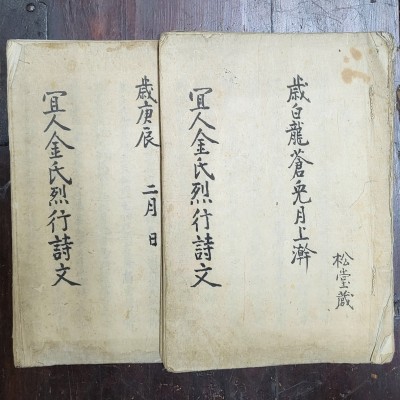 歳白龍蒼兎月上澣
松堂藏
宜人金氏烈行詩文
歳庚辰 二月 日
宜人金氏烈行詩文